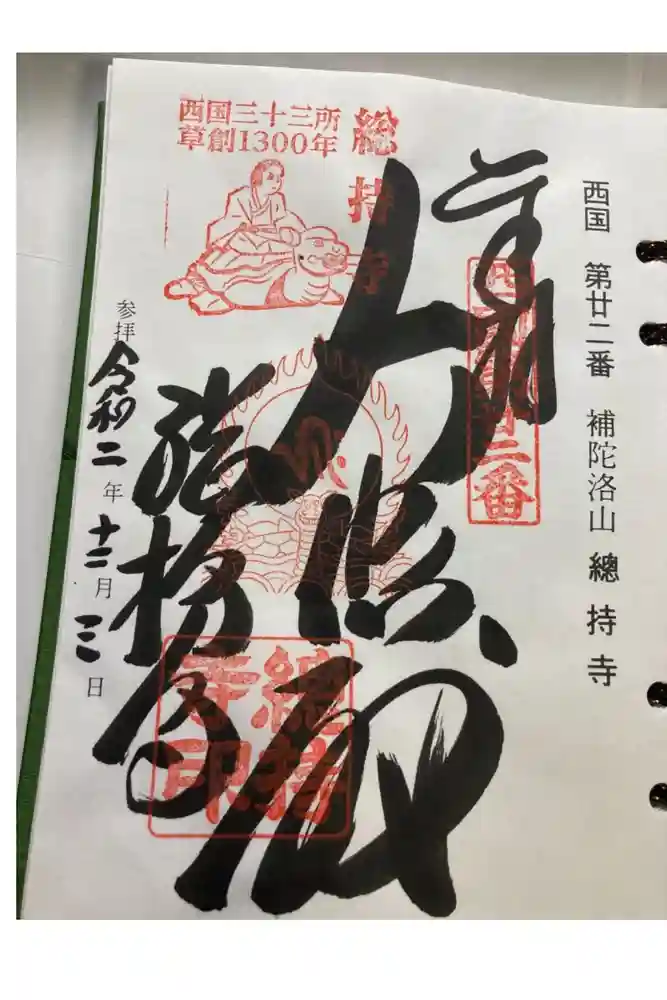 西国 第廿二番 補陀洛山 總持寺
奉拝
西国第廿二番
大悲殿
総持寺
西国三十三所
草創1300年
総持寺
總持寺印
参拝 令和二年十二月三日